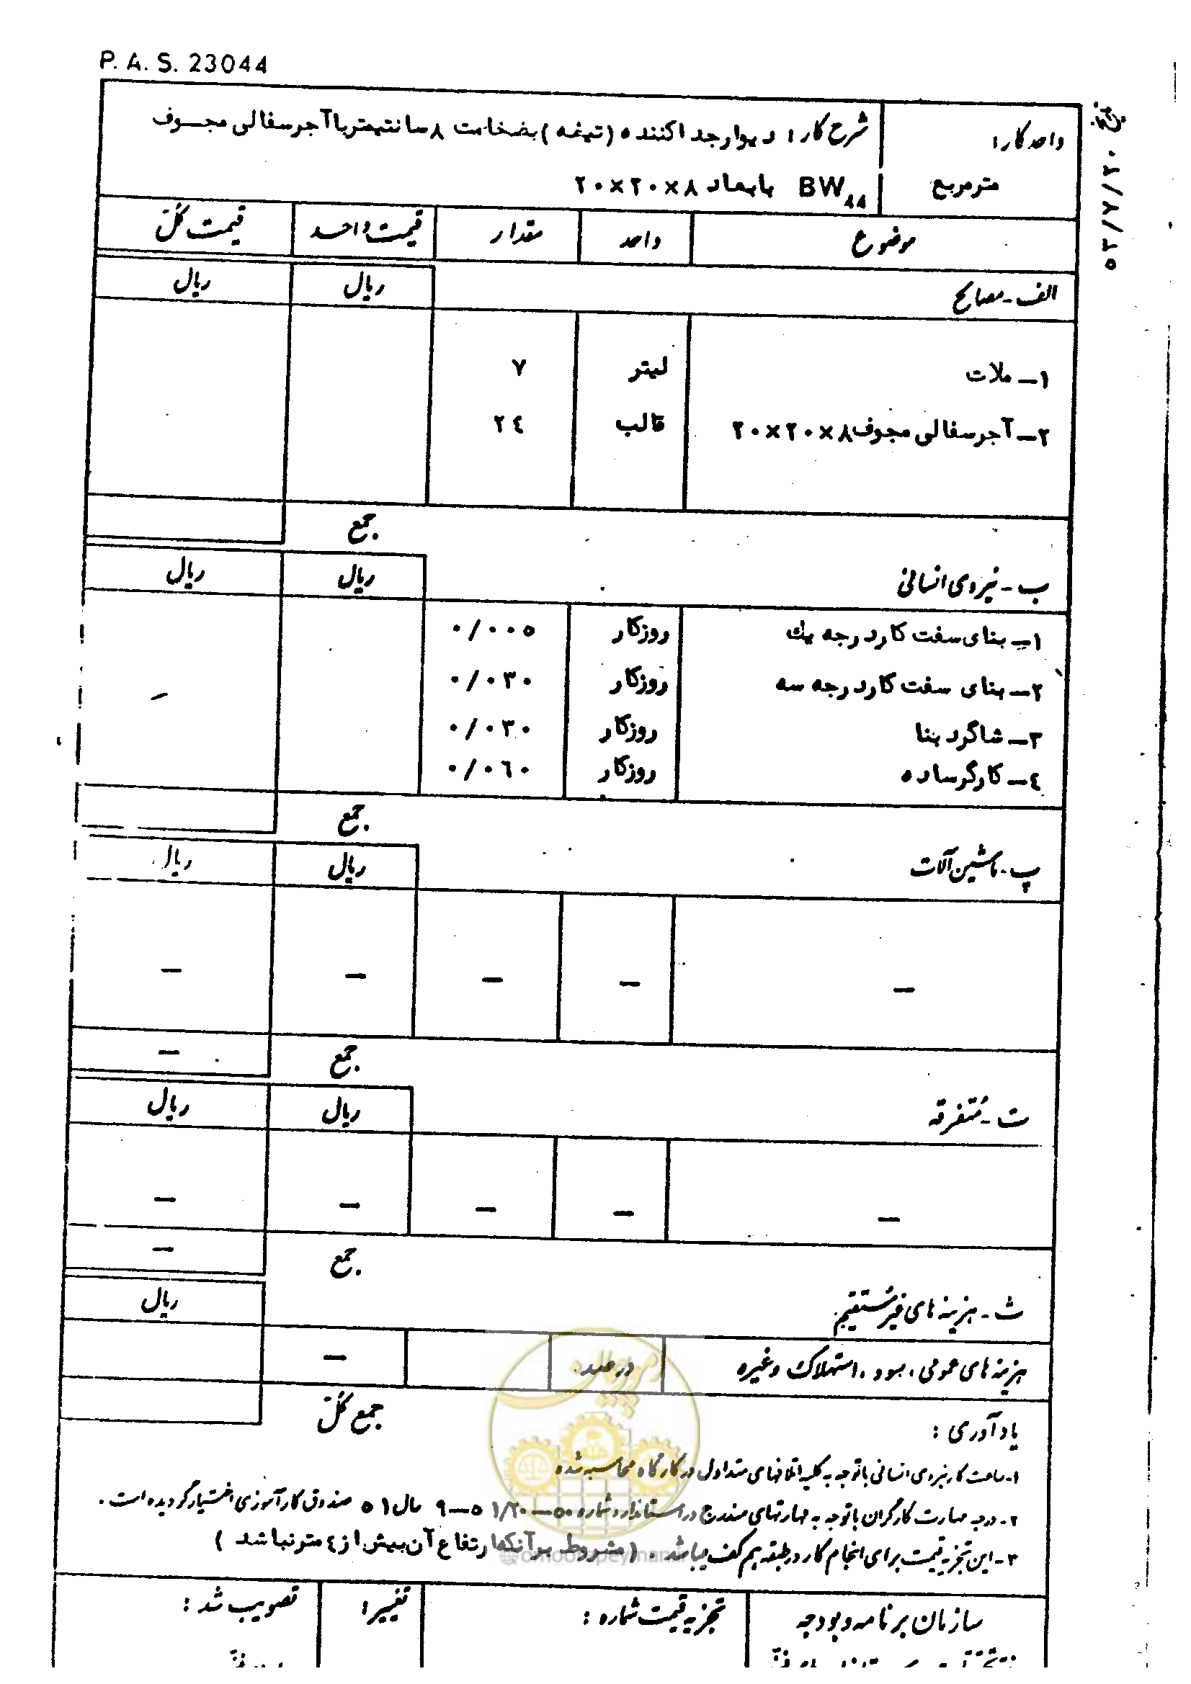 P. A. S. 23044
تاریخ ۵۳/۷/۲۰
واحد کار: شرح کار: دیوارجداکننده (تیغه) بضخامت ۸ سانتیمتر با آجرسفالی مجوف
مترمربع BW44 بابعاد ۸×۲۰×۲۰
موضوع واحد مقدار قیمت واحد قیمت کل
الف - مصالح ریال ریال
۱- ملات لیتر ۷
۲- آجرسفالی مجوف ۸×۲۰×۲۰ قالب ۲۴
جمع
ب - نیروی انسانی ریال ریال
۱- بنای سفت کار درجه یک روزکار ۰/۰۰۵
۲- بنای سفت کار درجه سه روزکار ۰/۰۳۰
۳- شاگرد بنا روزکار ۰/۰۳۰
۴- کارگر ساده روزکار ۰/۰۶۰
جمع
پ - ماشین آلات ریال ریال
— — — — —
جمع —
ت - متفرقه ریال ریال
— — — — —
جمع —
ث - هزینه های غیرمستقیم ریال
هزینه های عمومی، سود، استهلاک وغیره درصد —
جمع کل
یادآوری :
۱- ساعت کار نیروی انسانی باتوجه به کلیه اتلافهای متداول در کارگاه محاسبه شده
۲- درجه مهارت کارگران باتوجه به مهارتهای مندرج در استاندارد شماره ۵۰-۱/۲۰ ۵-۹ سال ۵۱ صندوق کارآموزی اختیار گردیده است.
۳- این تجزیه قیمت برای انجام کار در طبقه هم کف میباشد. (مشروط برآنکه ارتفاع آن بیش از ۴ متر نباشد)
@omoorepeymani
سازمان برنامه و بودجه تجزیه قیمت شماره : تغییر: تصویب شد :